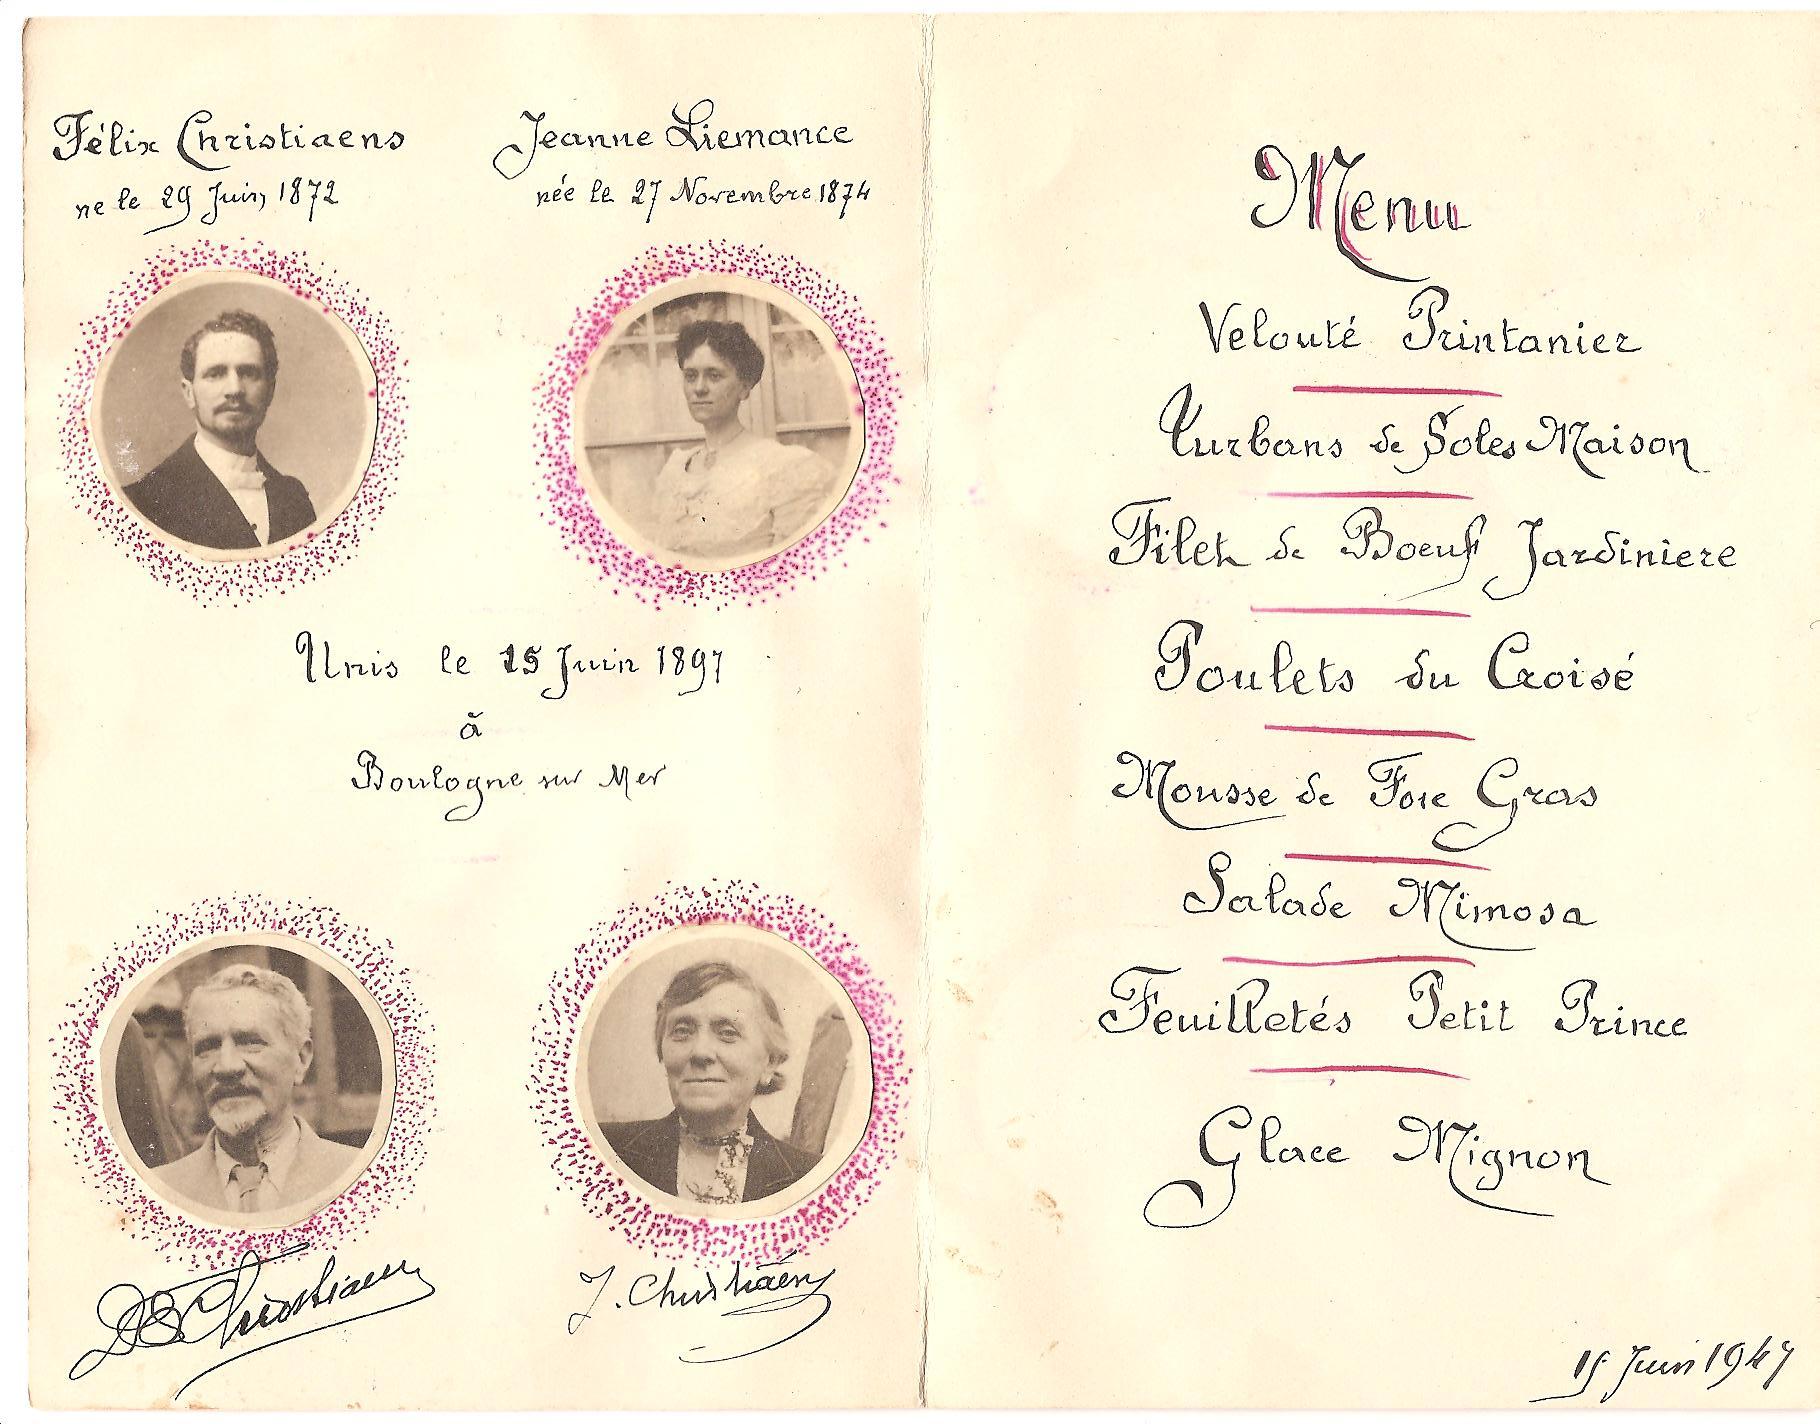 Félix Christiaens
ne le 29 Juin 1872
Jeanne Liemance
née le 27 Novembre 1874
Unis le 15 Juin 1897
à
Boulogne sur Mer
J. Christiaens
Menu
Velouté Printanier
Turbans de Soles Maison
Filet de Boeuf Jardiniere
Poulets du Croisé
Mousse de Foie Gras
Salade Mimosa
Feuilletés Petit Prince
Glace Mignon
15 Juin 1947